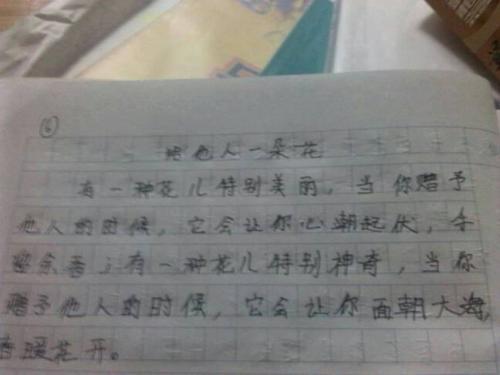 ⑥
给他人一朵花
有一种花儿特别美丽，当你赠予
他人的时候，它会让你心潮起伏，手
有余香；有一种花儿特别神奇，当你
赠予他人的时候，它会让你面朝大海，
春暖花开。